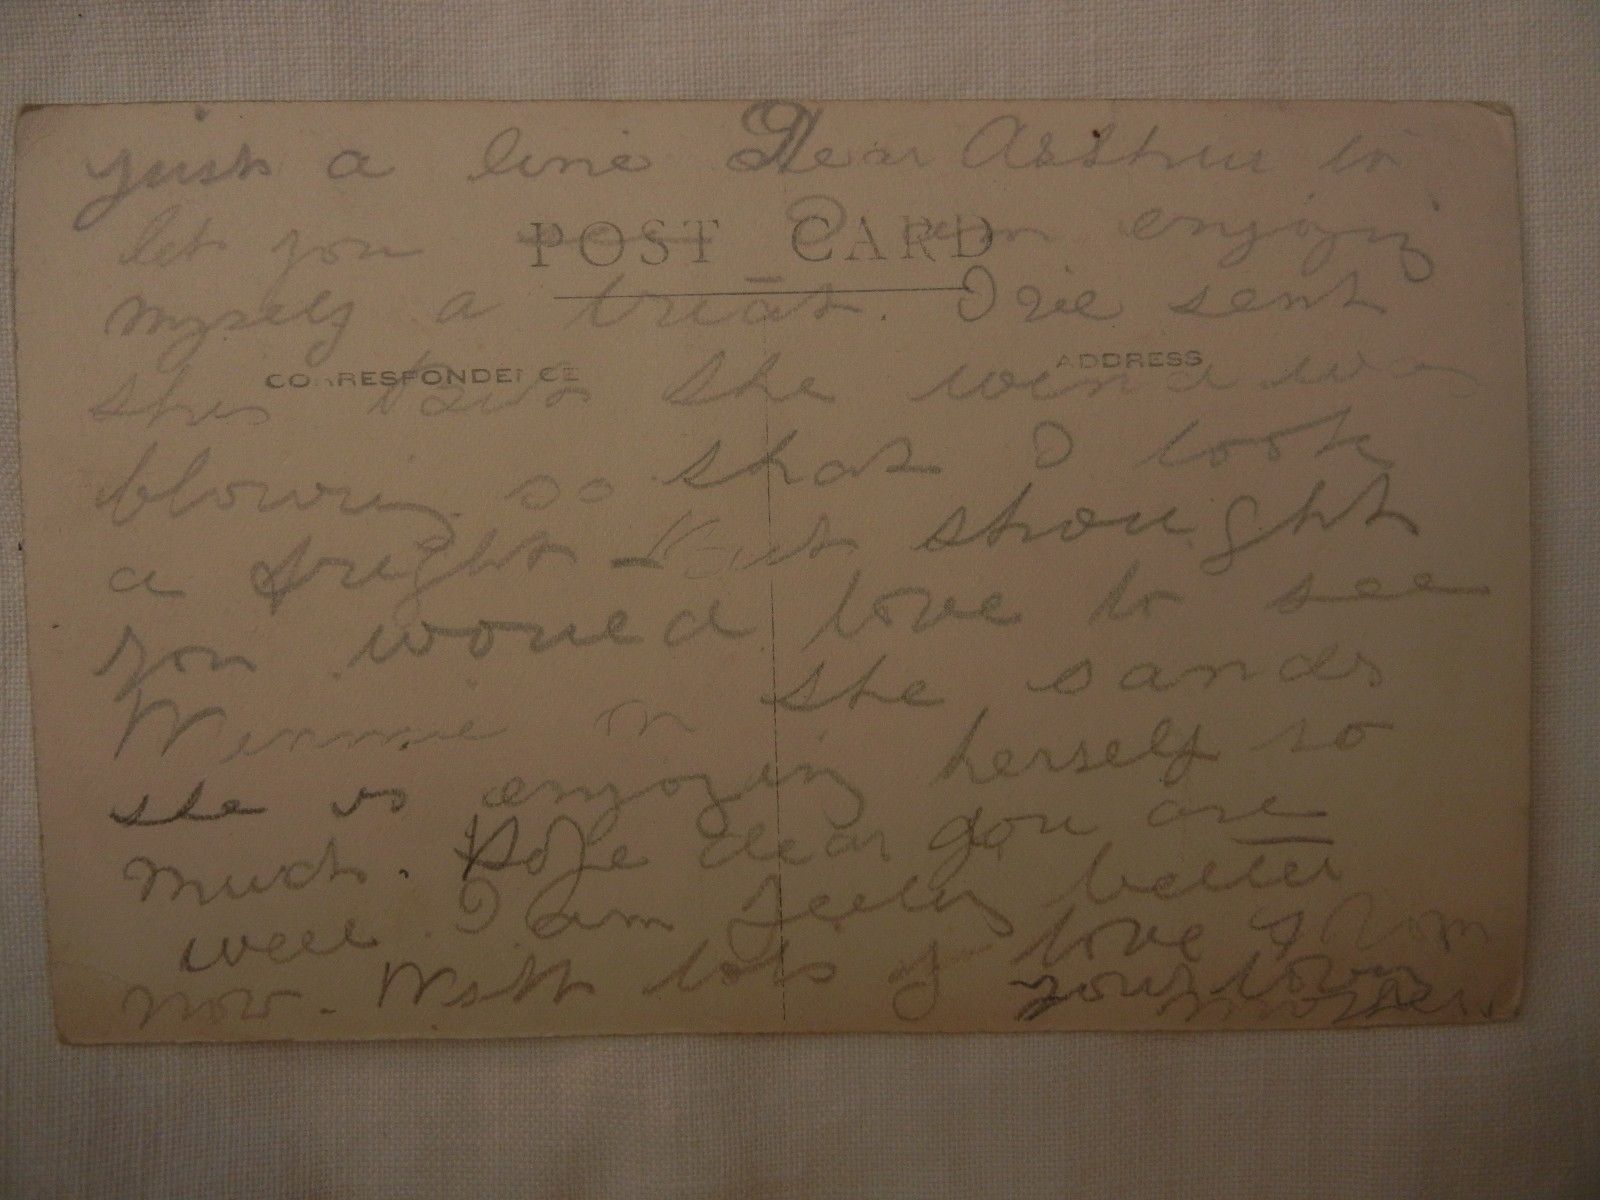 just a line Dear Arthur to
let you know I am enjoying
POST CARD
myself a treat. I've sent
CORRESPONDENCE
ADDRESS
this the wind was
blowing so that I look
a fright but thought
you would love to see
Winnie on the sands
she is enjoying herself so
much. Hope dear you are
well I am feeling better
now. With lots of love from
your loving
mother.